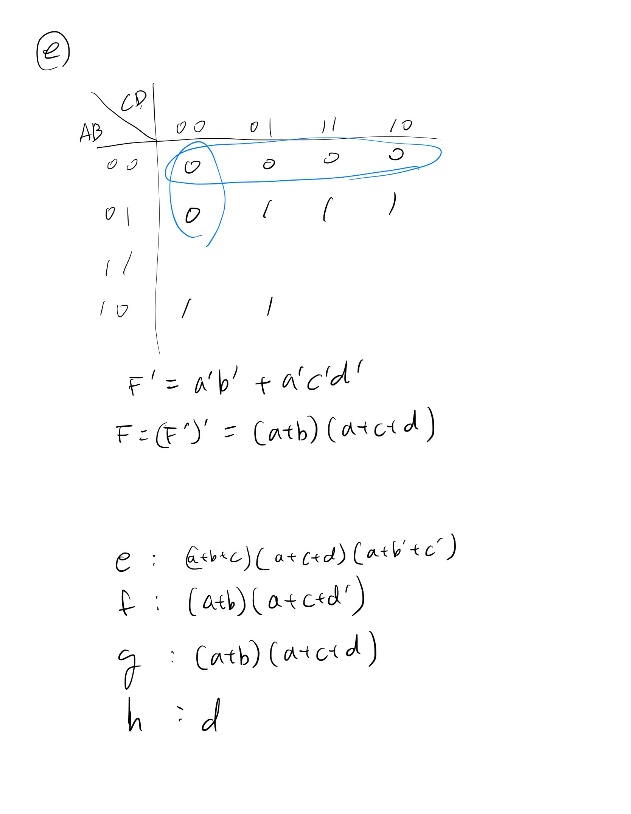 e
CD
AB 00 01 11 10
00 0 0 0 0
01 0 1 1 1
11
10 1 1
F' = a'b' + a'c'd'
F = (F')' = (a+b)(a+c+d)
e : (a+b+c)(a+c+d)(a+b'+c')
f : (a+b)(a+c+d')
g : (a+b)(a+c+d)
h : d